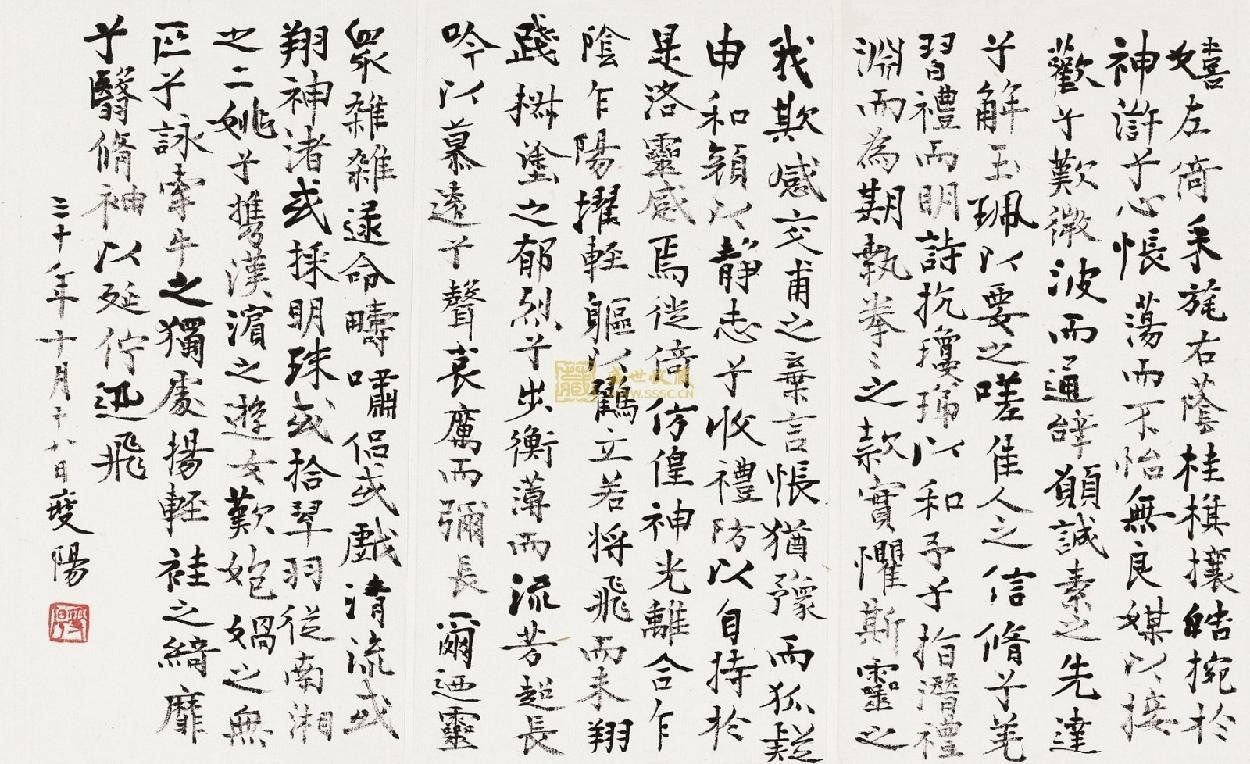 嬉左倚采旄右蔭桂棋攘皓捥於
神滸兮心悵蕩而不怡無良媒以接
歡兮歎微波而通辭願誠素之先達
兮解玉珮以要之嗟佳人之信脩兮羌
習禮而明詩抗瓊珶以和予兮指潛禮
淵而為期執拳〻之款實懼斯靈之
我欺感交甫之棄言悵猶豫而狐疑
申和顏以靜志兮收禮防以自持於
是洛靈感焉徙倚仿偟神光離合乍
陰乍陽擢輕軀以鶴立若將飛而未翔
踐椒塗之郁烈兮出衡薄而流芳超長
吟以慕遠兮聲哀厲而彌長爾迺靈
眾雜雜遝命疇嘯侶或戲清流或
翔神渚或採明珠或拾翠羽從南湘
之二姚兮攜漢濱之遊女歎匏媧之無
匹兮詠牽牛之獨處揚輕袿之綺靡
兮翳脩袖以延佇迅飛
三十年十月十八日雙陽
盛世收藏
WWW.SSSC.CN